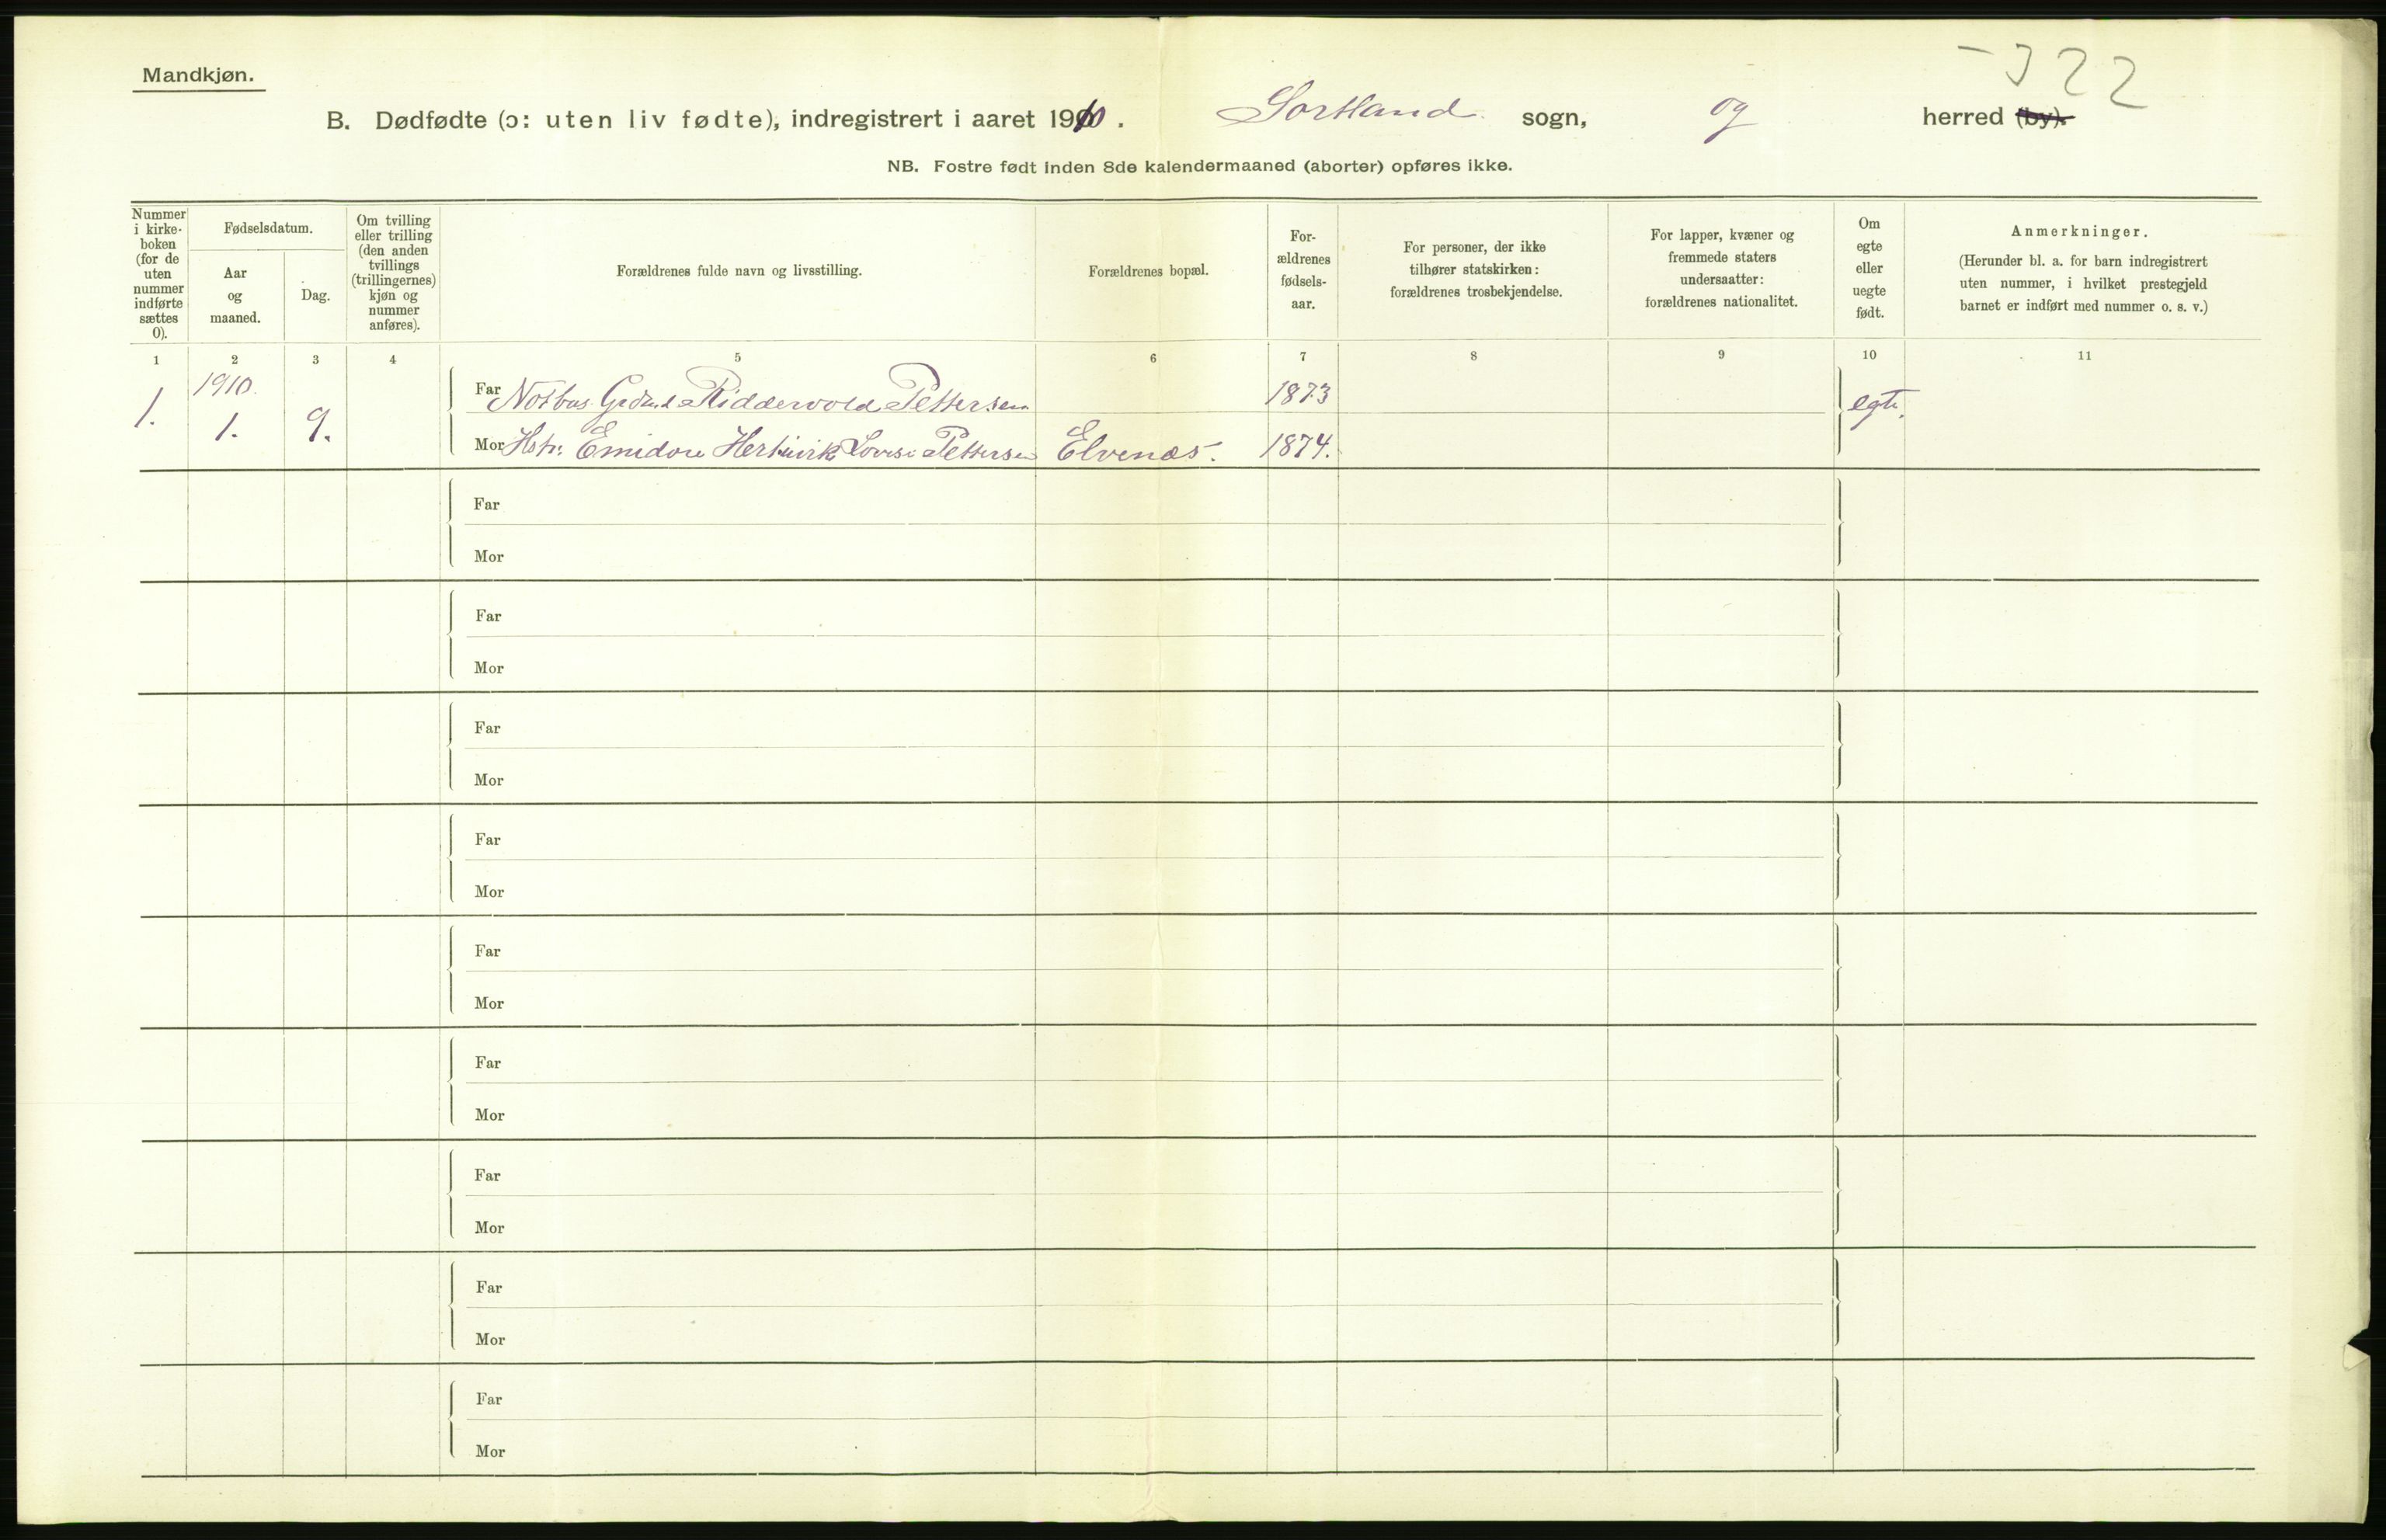 -322
Mandkjøn.
B. Dødfødte (ɔ: uten liv fødte), indregistrert i aaret 1910. Sortland sogn, og herred (by).
NB. Fostre født inden 8de kalendermaaned (aborter) opføres ikke.
Nummer i kirke-boken (for de uten nummer indførte sættes 0).
Fødselsdatum.
Aar og maaned.
Dag.
Om tvilling eller trilling (den anden tvillings (trillingernes) kjøn og nummer anføres).
Forældrenes fulde navn og livsstilling.
Forældrenes bopæl.
For-ældrenes fødsels-aar.
For personer, der ikke tilhører statskirken: forældrenes trosbekjendelse.
For lapper, kvæner og fremmede staters undersaatter: forældrenes nationalitet.
Om egte eller uegte født.
Anmerkninger.
(Herunder bl. a. for barn indregistrert uten nummer, i hvilket prestegjeld barnet er indført med nummer o. s. v.)
1 2 3 4 5 6 7 8 9 10 11
1. 1910. 1. 9.
Far Notbas Ridderwold Pettersen 1873 egte.
Mor Hstr. Emidore Lovise Pettersen Elvenæs. 1874.
Far
Mor
Far
Mor
Far
Mor
Far
Mor
Far
Mor
Far
Mor
Far
Mor
Far
Mor
Far
Mor